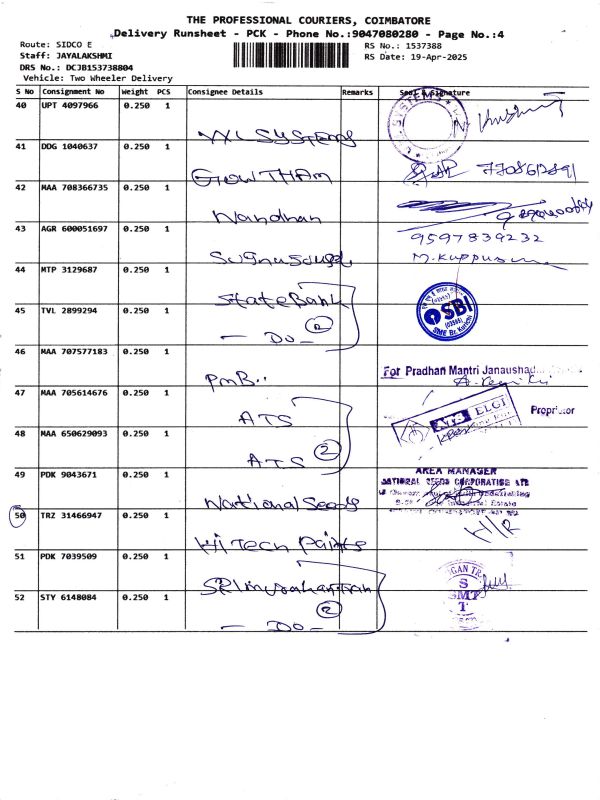 THE PROFESSIONAL COURIERS, COIMBATORE
Delivery Runsheet - PCK - Phone No.:9047080280 - Page No.:4
Route: SIDCO E
RS No.: 1537388
Staff: JAYALAKSHMI
RS Date: 19-Apr-2025
DRS No.: DCJB153738804
Vehicle: Two Wheeler Delivery
S No Consignment No Weight PCS Consignee Details Remarks Seal & Signature
40 UPT 4097966 0.250 1
SYSTEMS
41 DDG 1040637 0.250 1
GOWTHAM
42 MAA 708366735 0.250 1
Nandhan
43 AGR 600051697 0.250 1
9597839232
44 MTP 3129687 0.250 1
State Bank
SBI
SME Br. Kurichi
45 TVL 2899294 0.250 1
- Do - 2
46 MAA 707577183 0.250 1
PMB..
For Pradhan Mantri Janaushad
47 MAA 705614676 0.250 1
ATS
ATS ELGI
Proprietor
48 MAA 650629093 0.250 1
ATS 2
49 PDK 9043671 0.250 1
National Seeds
AREA MANAGER
NATIONAL SEEDS CORPORATION LTD
50 TRZ 31466947 0.250 1
Hi Tech Paints
H/R
51 PDK 7039509 0.250 1
52 STY 6148084 0.250 1
- Do - 2